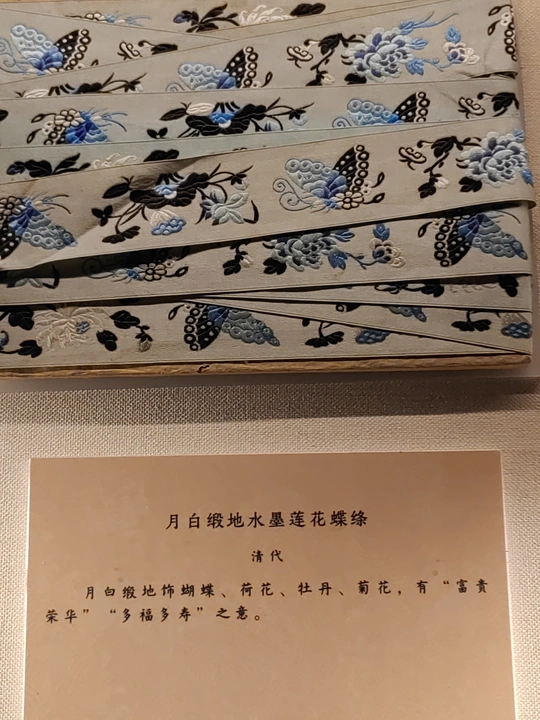 月白缎地水墨莲花蝶绦
清代
月白缎地饰蝴蝶、荷花、牡丹、菊花，有“富贵
荣华”“多福多寿”之意。